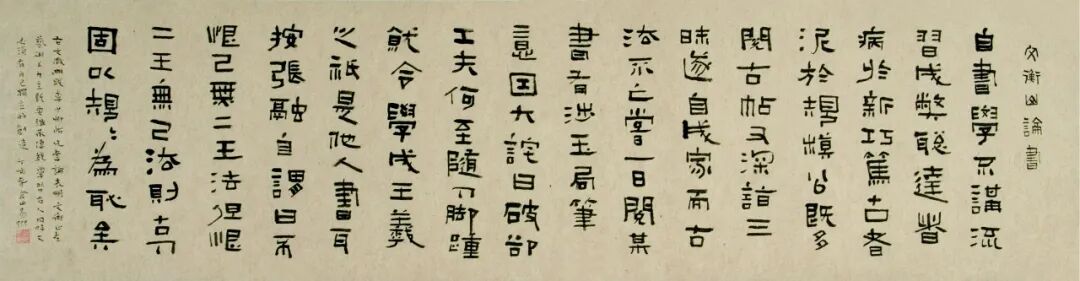 文衡山論書
自書學不講流
習成弊聡達者
病於新巧篤古者
泥於規模公既多
閱古帖又深詣三
昧遂自成家而古
法不亡嘗一日閱某
書有涉玉局筆
意因大詫曰破卻
工夫何至隨人脚踵
就令學成王羲
之祇是他人書耳
按張融自謂曰不
恨己無二王法但恨
二王無己法則古人
固以規〻為恥矣